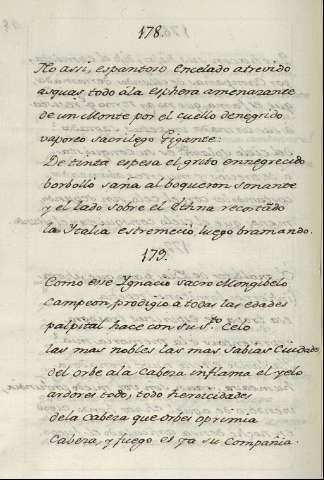 178.
No assi, espantoso Encelado atrevido
asquas todo à la Esphera amenazante
de un Monte por el cuello denegrido
vaporeo sacrilego Gigante:
De tinta espesa el gruto ennegrecido
borbollò saña al boqueron sonante
y el lado sobre el Ethna recostado
la Italia estremeciò luego bramando.
179.
Como ese Ignacio sacro Mongibelo
Campeon, prodigio à todas las edades
palpital hace con su Sto. Celo
las mas nobles las mas sabias Ciudades
del orbe a la Cabeza inflama el yelo
ardores todo, todo heroicidades
de la Cabeza que orbes oprimia
Cabeza, y fuego es ya su Compañia.